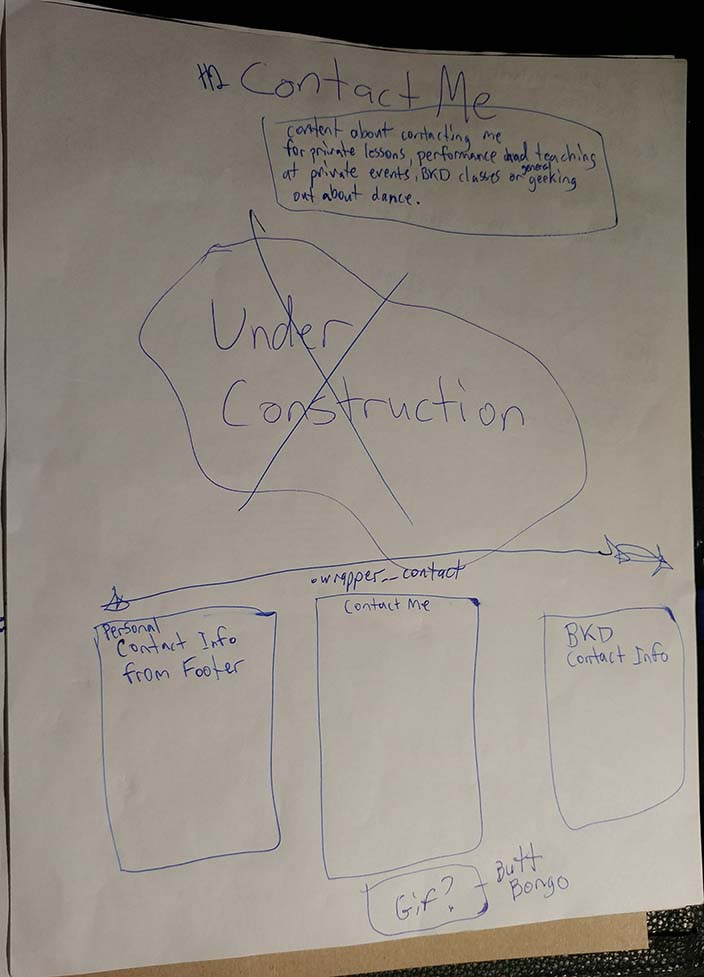 H2 Contact Me
content about contacting me
for private lessons, performance and teaching
at private events, BKD classes or general geeking
out about dance.
Under
Construction
.wrapper__contact
Personal
Contact Info
from Footer
Contact Me
BKD
Contact Info
Gif?
Butt
Bongo